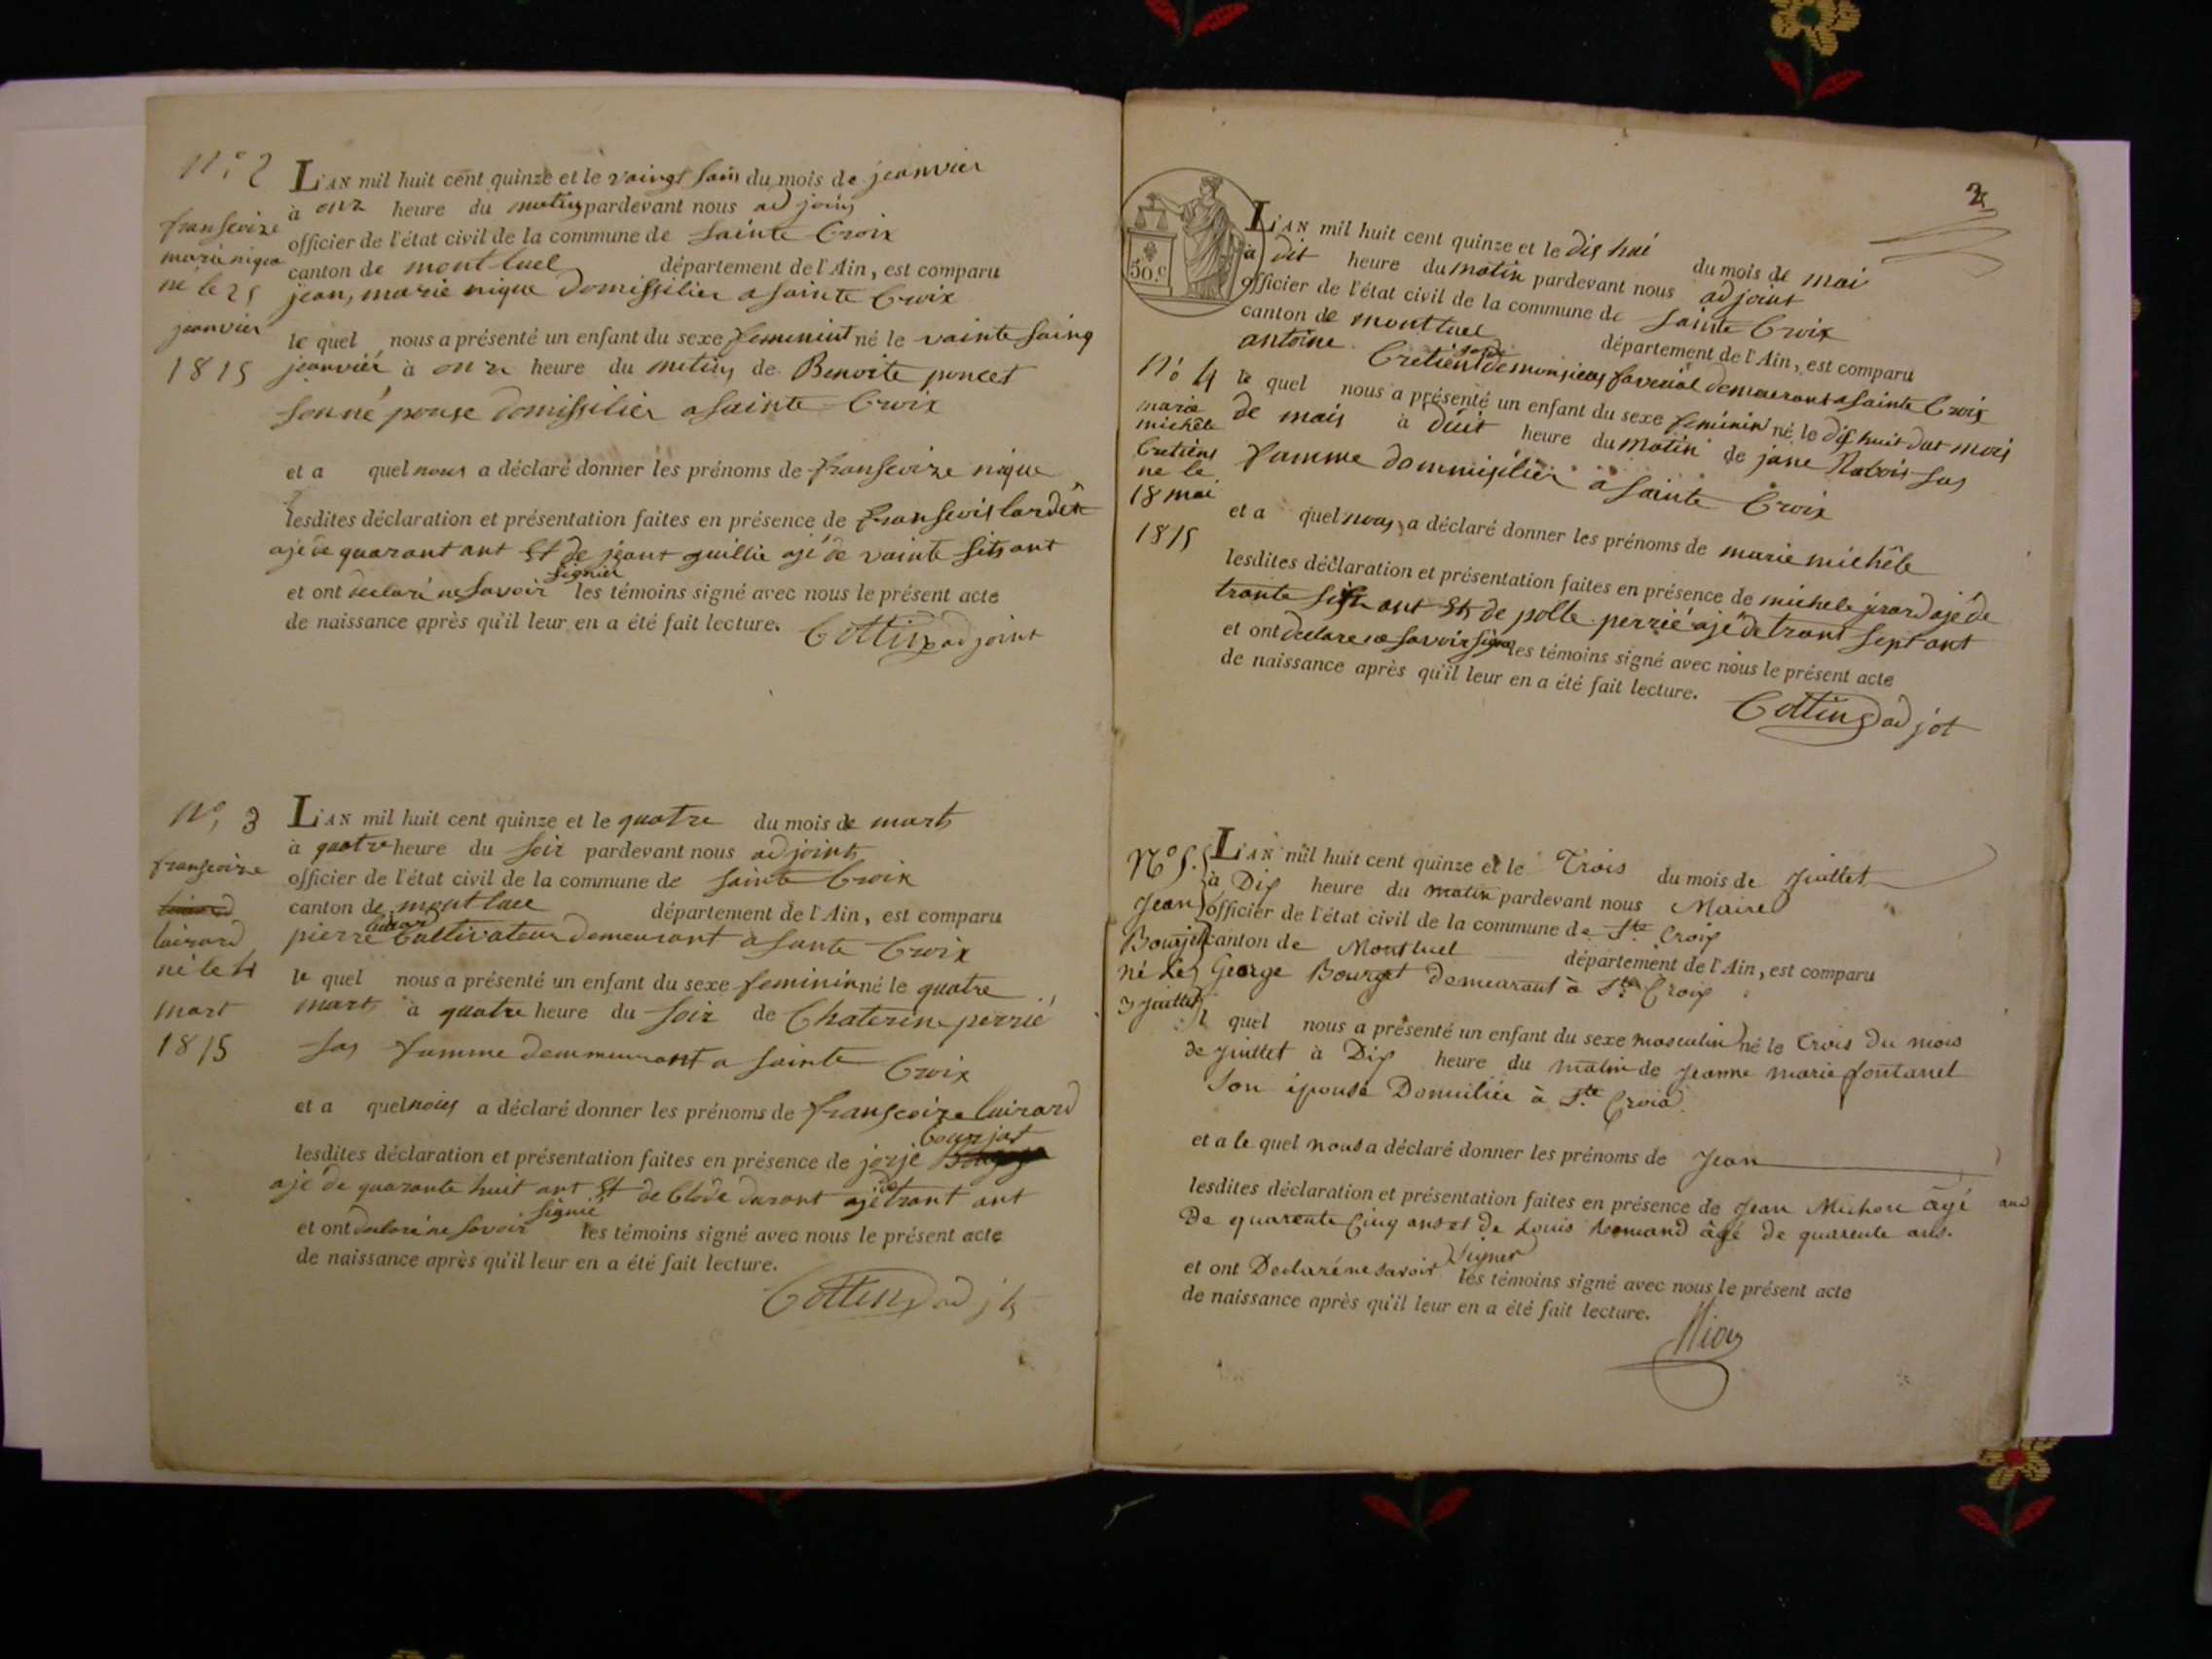 N° 2
fransoize
marie nique
né le 25
janvier
1815
L'AN mil huit cent quinze et le vaingt sain du mois de jeanvier
à onz heure du matin pardevant nous adjoin
officier de l'état civil de la commune de sainte Croix
canton de montluel département de l'Ain, est comparu
jean, marie nique domissilier a sainte Croix
le quel nous a présenté un enfant du sexe feminint né le vainte saing
jeanvier à onze heure du matin de Benoite poncet
son né pouse domissilier a sainte Croix
et a quel nous a déclaré donner les prénoms de nique
lesdites déclaration et présentation faites en présence de
aje de quarant ant et de jeant guillie aje de vainte sits ant
et ont declaré ne savoir signier les témoins signé avec nous le présent acte
de naissance après qu'il leur en a été fait lecture.
Cottin adjoint
N° 3
fransoize
lairard
né le 4
mart
1815
L'AN mil huit cent quinze et le quatre du mois de mart
à quatre heure du soir pardevant nous adjoint
officier de l'état civil de la commune de sainte Croix
canton de montluel département de l'Ain, est comparu
pierre Cultivateur demeurant a sainte Croix
le quel nous a présenté un enfant du sexe feminin né le quatre
mart à quatre heure du soir de Chaterine perrié
sas famme demmeurant a sainte Croix
et a quel nous a déclaré donner les prénoms de
lesdites déclaration et présentation faites en présence de jorje Bourjat
aje de quarante huit ant et de Clode durant aje de trant ant
et ont declaré ne savoir signié les témoins signé avec nous le présent acte
de naissance après qu'il leur en a été fait lecture.
Cottin adjt
2
50.c
N° 4
marie
michèle
Cretiens
né le
18 mai
1815
L'AN mil huit cent quinze et le dis hui du mois de mai
à dit heure du matin pardevant nous adjoint
officier de l'état civil de la commune de sainte Croix
canton de montluel département de l'Ain, est comparu
antoine Cretient de monsieur demeurant a sainte Croix
le quel nous a présenté un enfant du sexe feminin né le dis huit dut mois
de mais à heure du matin de jane sas
famme dommisilier a sainte Croix
et a quel nous a déclaré donner les prénoms de marie michèle
lesdites déclaration et présentation faites en présence de michele jirard aje de
trante ant et de polle perrié aje de trant sept ant
et ont declare ne savoir signé les témoins signé avec nous le présent acte
de naissance après qu'il leur en a été fait lecture.
Cottin adjot
N° 5.
Jean
Bourjet
né le
3 juillet
L'AN mil huit cent quinze et le Trois du mois de Juillet
à Dix heure du matin pardevant nous Maire
officier de l'état civil de la commune de Ste Croix
canton de Montluel département de l'Ain, est comparu
George Bourget demeurant à Ste Croix
l quel nous a présenté un enfant du sexe masculin né le Trois du mois
de Juillet à Dix heure du matin de Jeanne marie fontanel
son épouse Domiciliée à Ste Croix
et a le quel nous a déclaré donner les prénoms de Jean
lesdites déclaration et présentation faites en présence de Jean Michon âgé
De quarente Cinq ans et de Louis âgé de quarente ans.
et ont Declaré ne savoir Signer les témoins signé avec nous le présent acte
de naissance après qu'il leur en a été fait lecture.